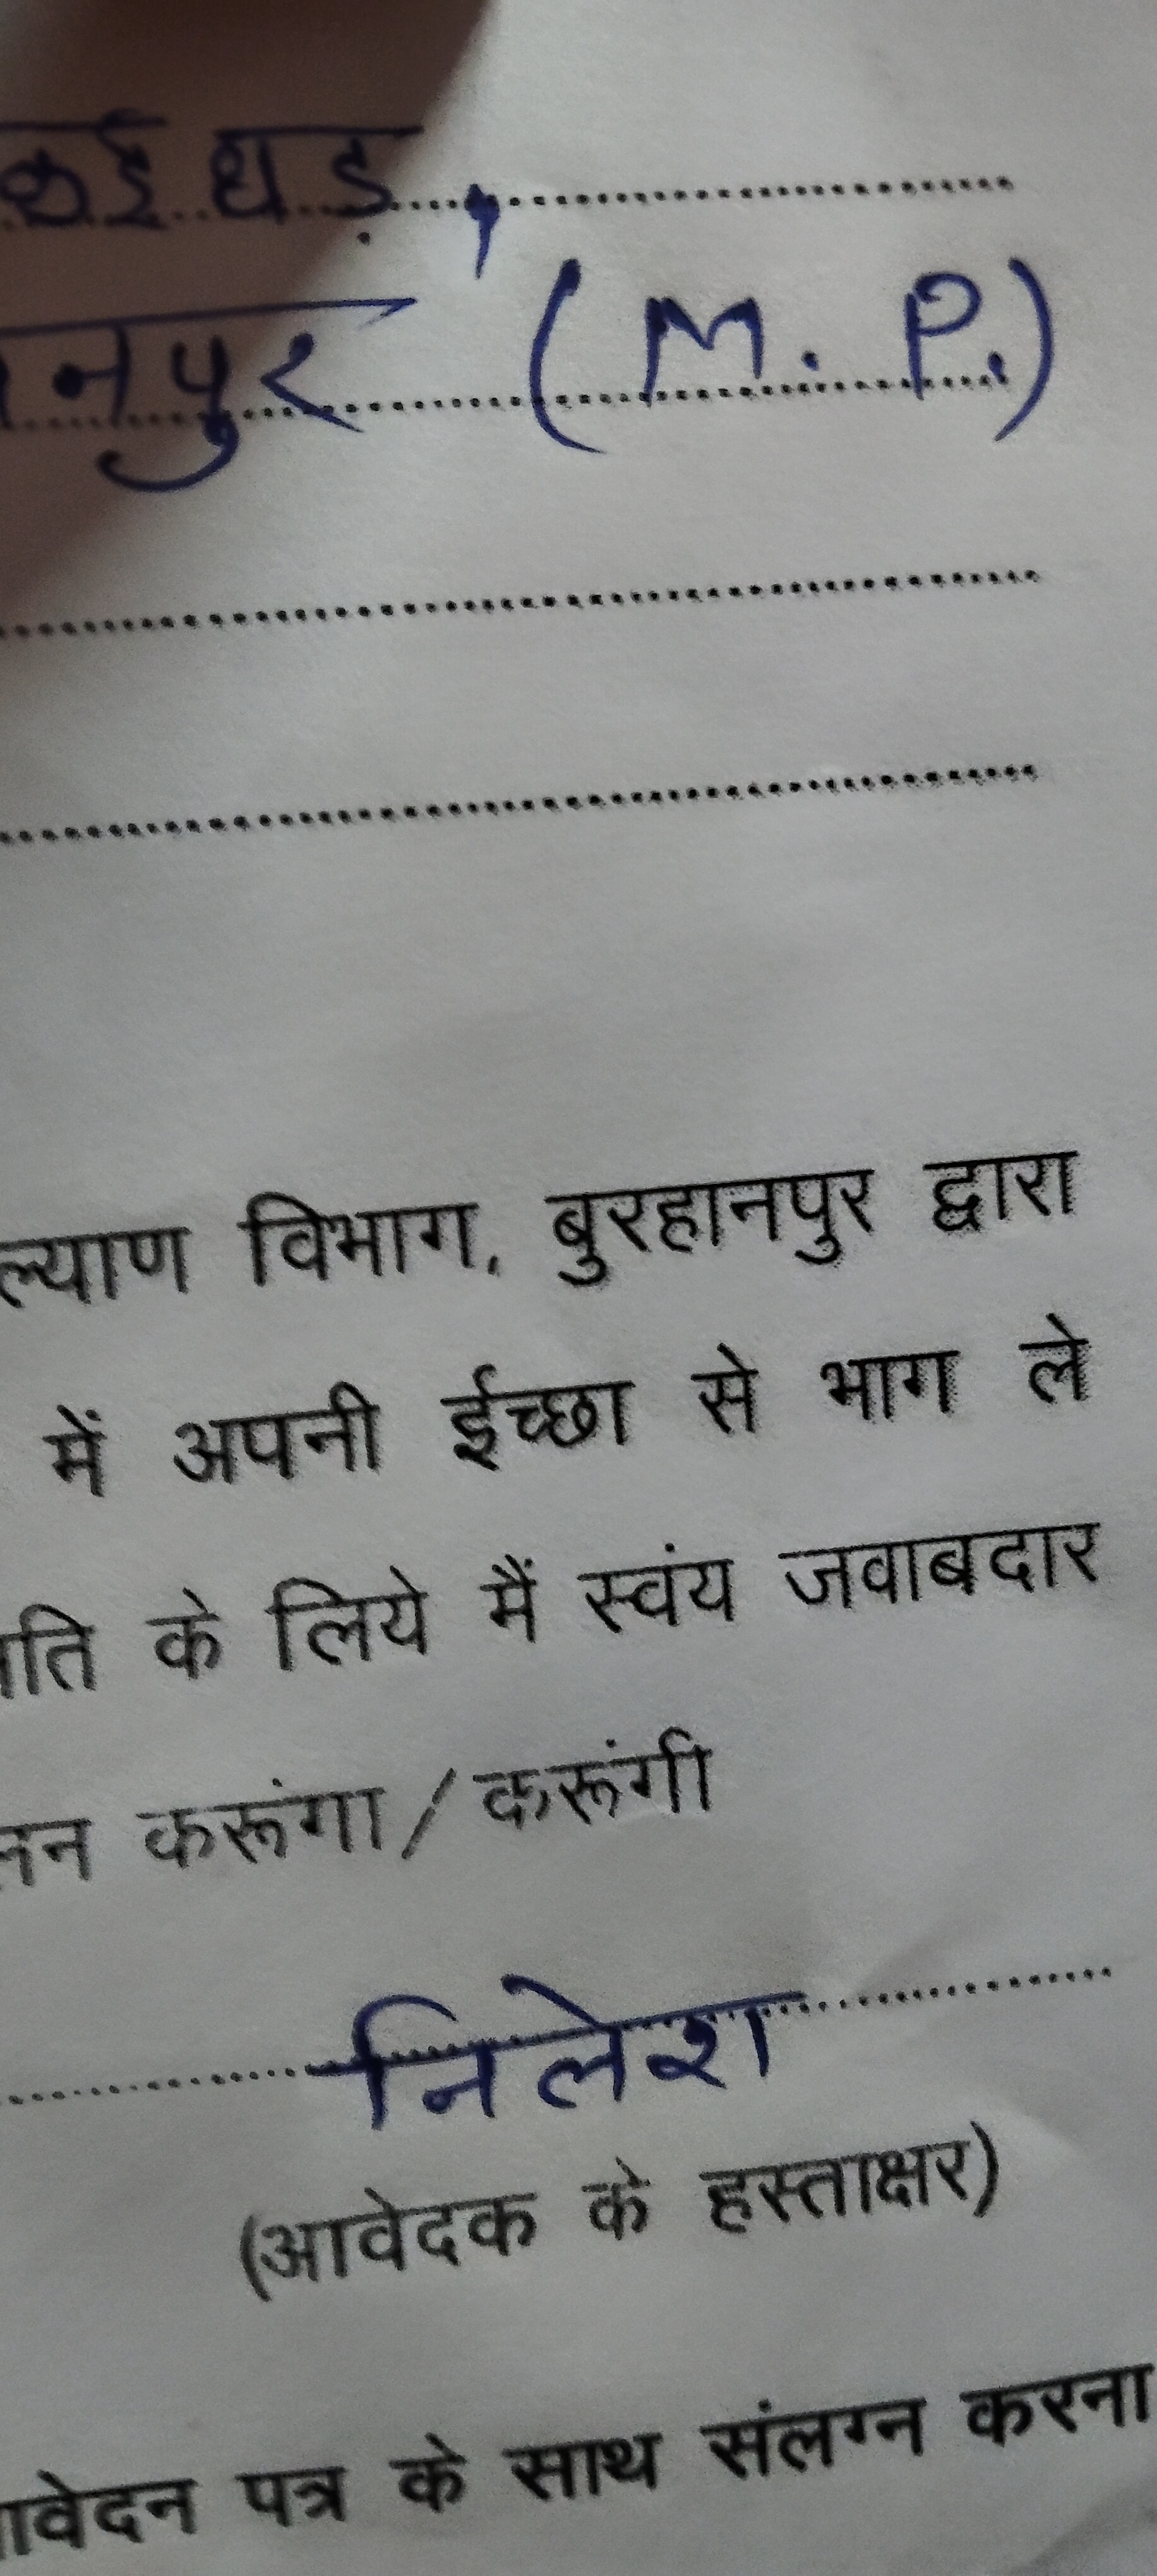 कई धड़,
नपुर (M. P.)
ल्याण विभाग, बुरहानपुर द्वारा
में अपनी ईच्छा से भाग ले
ति के लिये मैं स्वंय जवाबदार
न करूंगा/करूंगी
निलेश
(आवेदक के हस्ताक्षर)
ावेदन पत्र के साथ संलग्न करना